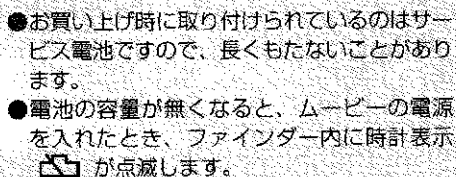 ●お買い上げ時に取り付けられているのはサー
ビス電池ですので、長くもたないことがあり
ます。
●電池の容量が無くなると、ムービーの電源
を入れたとき、ファインダー内に時計表示
が点滅します。